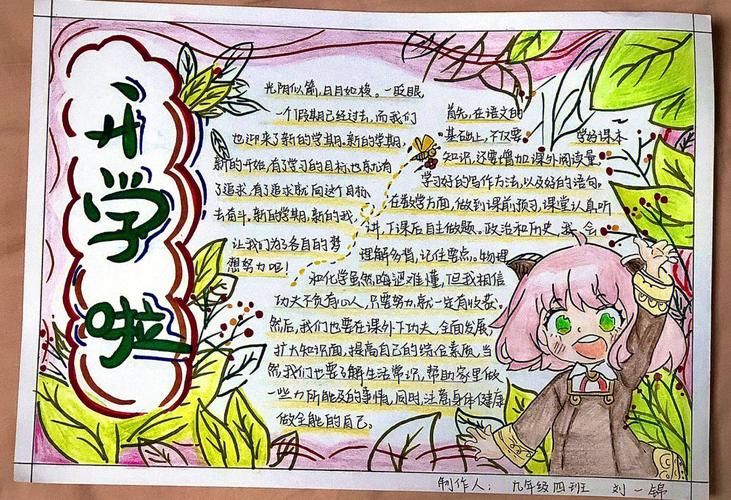 开学啦
光阴似箭,日月如梭。一眨眼
一个假期已经过去,而我们
也迎来了新的学期。新的学期,
新的开始,有了学习的目标,也就有
了追求,有了追求就向这个目标
去奋斗。新的学期,新的我,
让我们为了各自的梦
想努力吧!
首先,在语文的
基础上,不仅要 学好课本
知识,还要增加课外阅读量,
学习好的写作方法,以及好的语句。
在数学方面,做到课前预习,课堂认真听
讲,下课后自主做题。政治和历史,我会
理解背,记住要点。物理
和化学虽然晦涩难懂,但我相信
功夫不负有心人,只要努力,就一定有收获。
然后,我们也要在课外下功夫,全面发展,
扩大知识面,提高自己的综合素质,当
然我们也要了解生活常识,帮助家里做
一些力所能及的事情,同时注意身体健康
做全能的自己。
制作人: 九年级四班 刘一锦